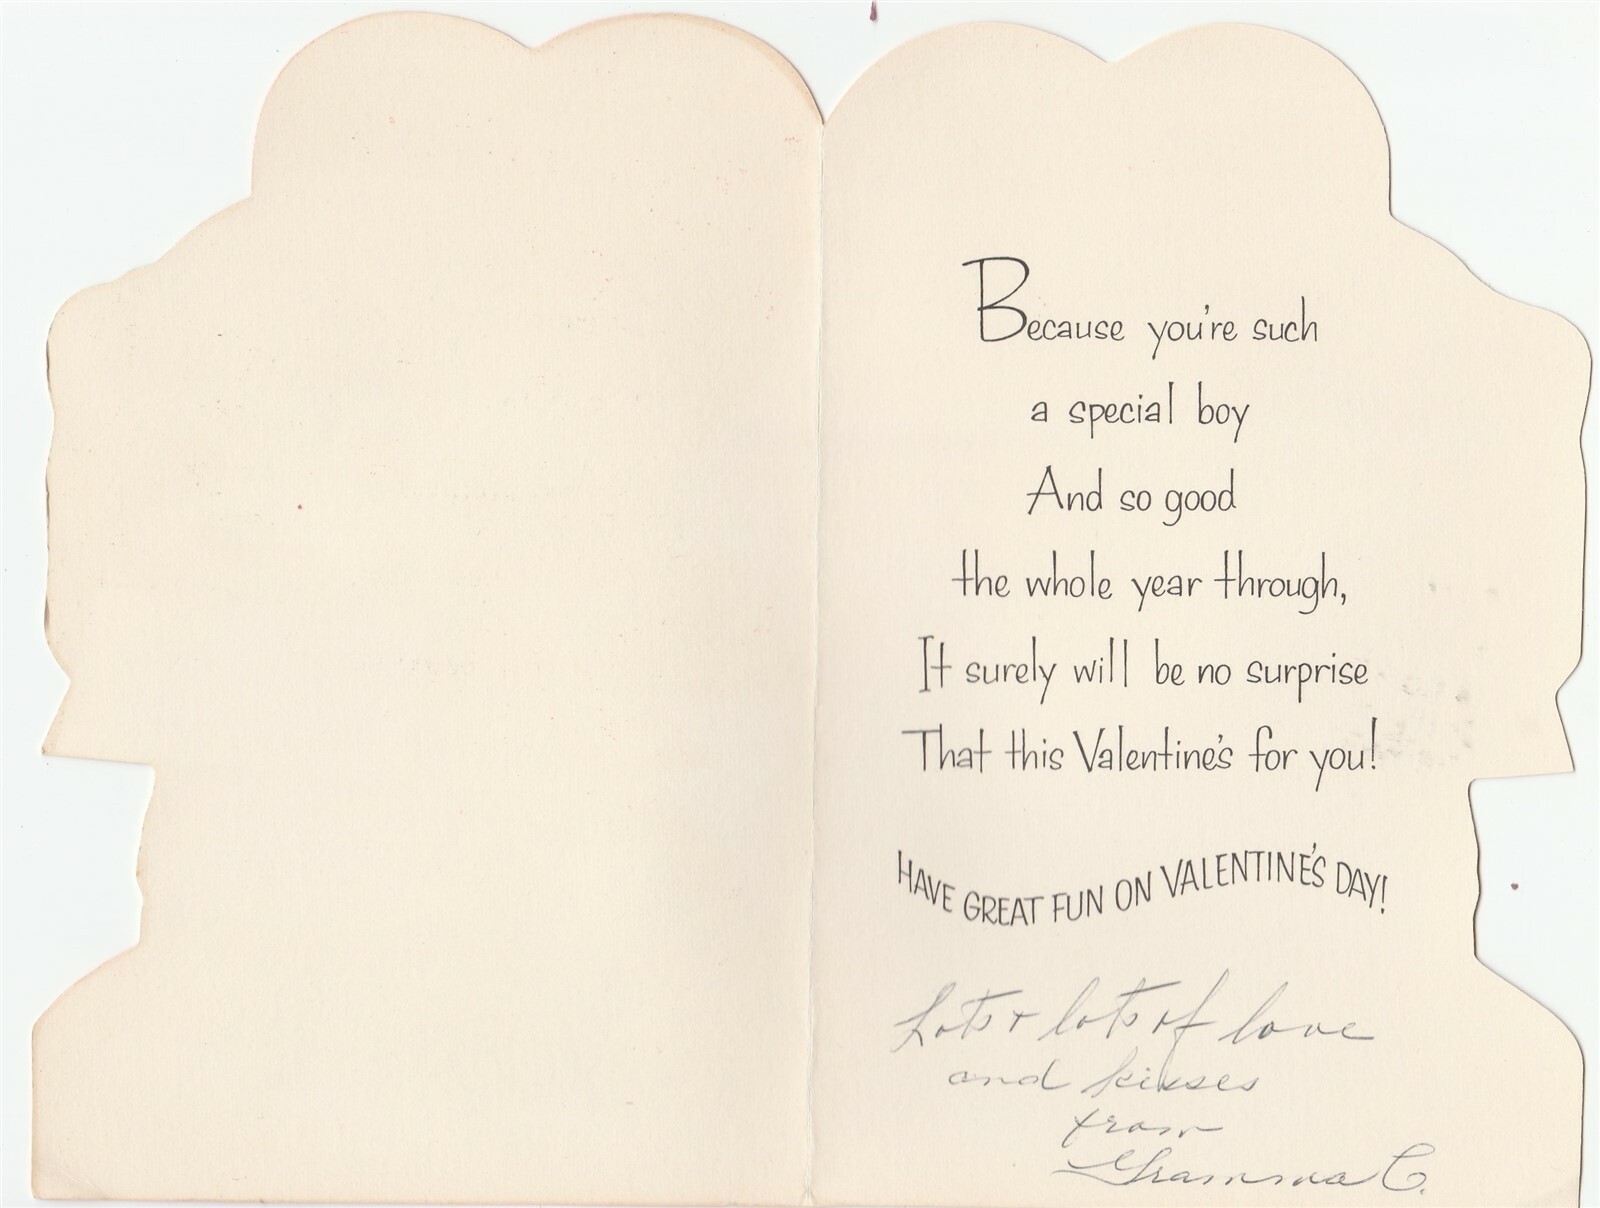 Because you're such
a special boy
And so good
the whole year through,
It surely will be no surprise
That this Valentine's for you!
HAVE GREAT FUN ON VALENTINE'S DAY!
Lots + lots of love
and kisses
from
Gramma C.